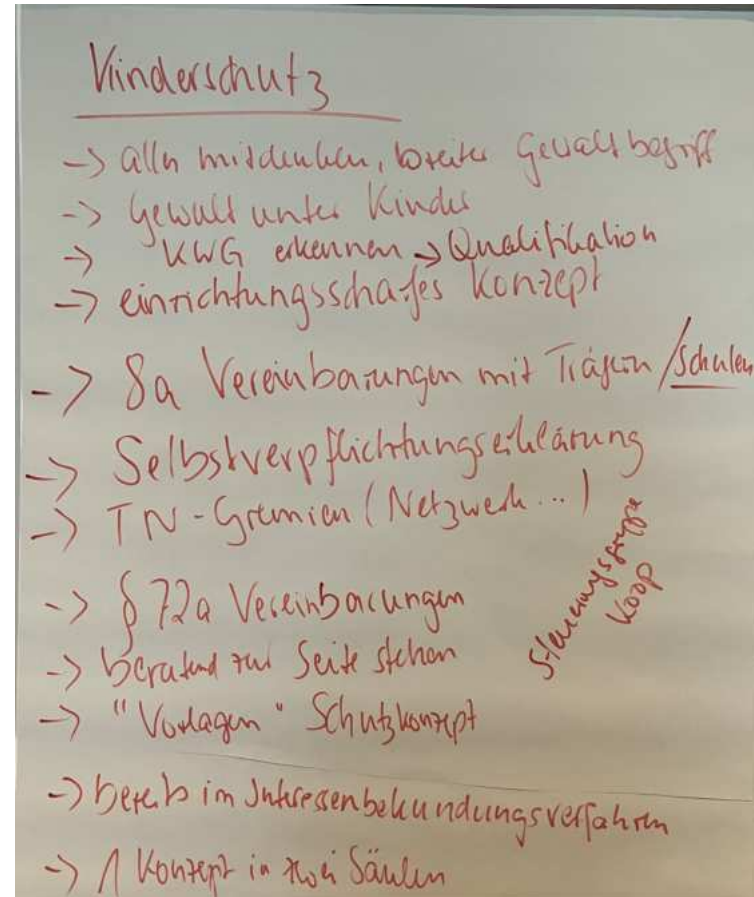 Kinderschutz
-> alln mitdenken, breiter Gewaltbegriff
-> Gewalt unter Kinder
-> KWG erkennen -> Qualifikation
-> einrichtungsscharfes Konzept
-> 8a Vereinbarungen mit Trägern / Schulen
-> Selbstverpflichtungserklärung
-> TN-Gremien (Netzwerk...)
Steuerungsgruppe
Koop
-> § 72a Vereinbarungen
-> beratend zur Seite stehen
-> "Vorlagen" Schutzkonzept
-> bereits im Interessenbekundungsverfahren
-> 1 Konzept in zwei Säulen